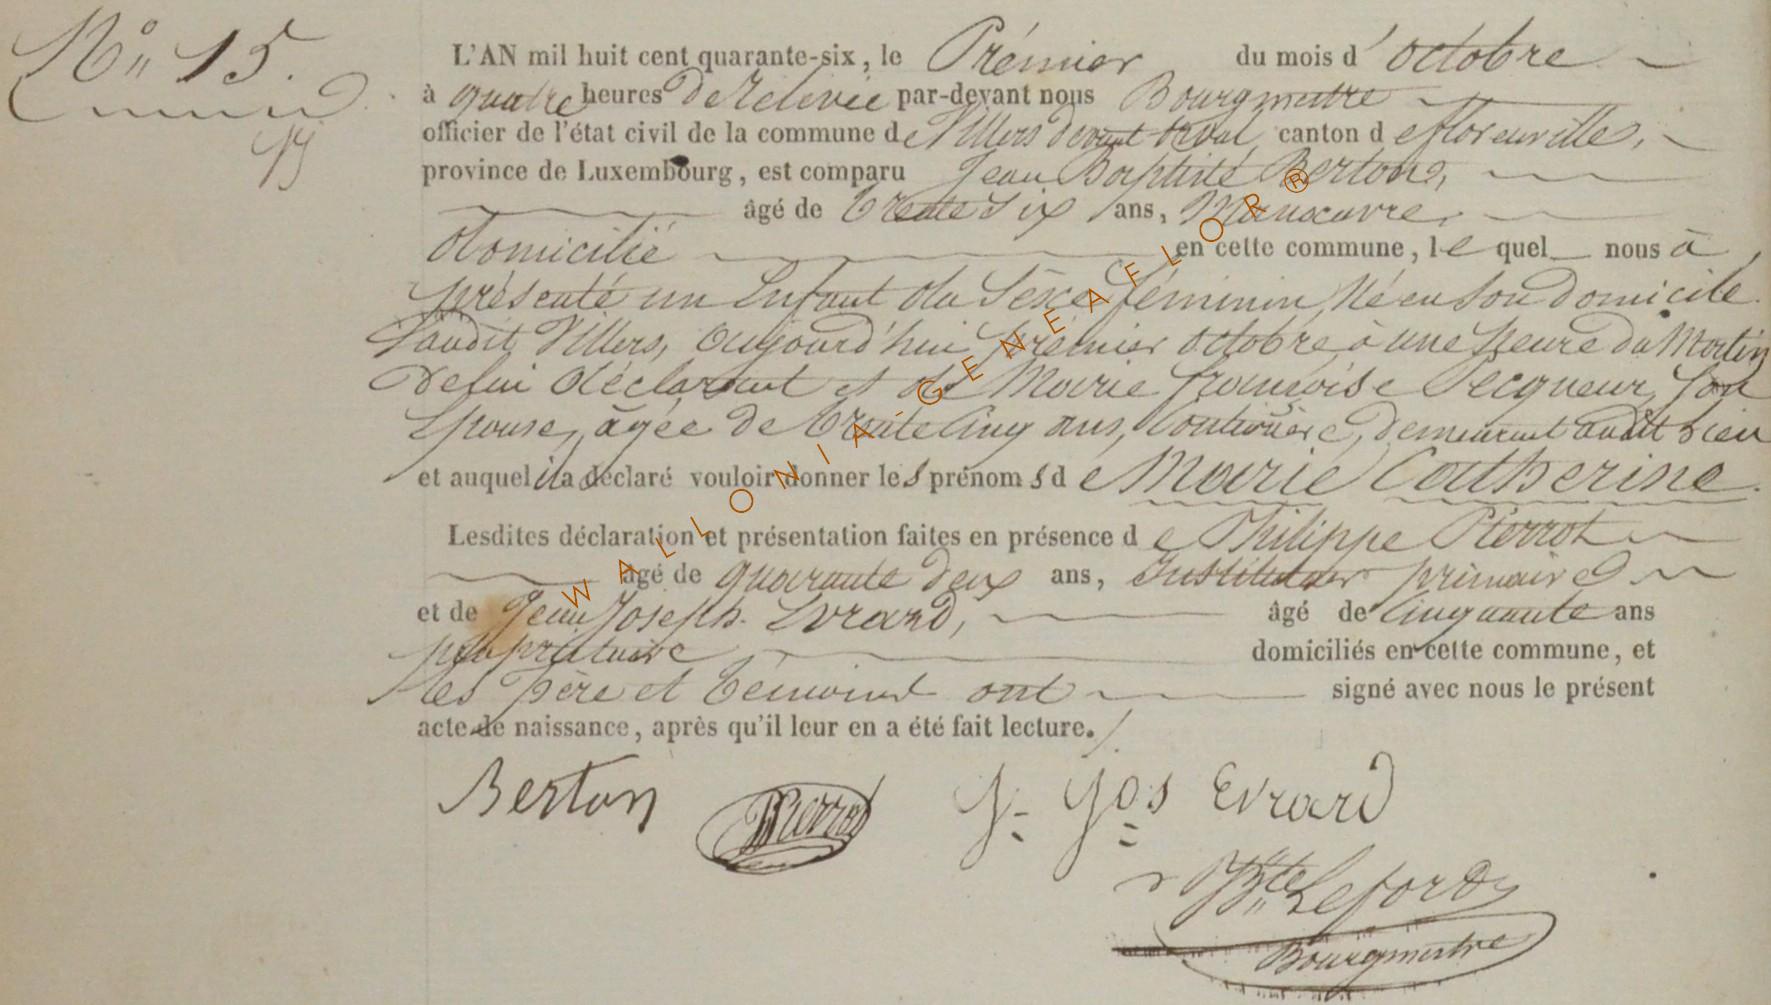 N° 15.
L'AN mil huit cent quarante-six, le Prémier du mois d'octobre
à quatre heures de relevée par-devant nous Bourgmestre
officier de l'état civil de la commune de Villers devant orval, canton de florenville,
province de Luxembourg, est comparu Jean Baptiste Berton,
âgé de trente six ans, Manœuvre,
domicilié en cette commune, le quel nous à
présenté un Enfant du Sexe féminin, Né en son domicile
audit Villers, aujourd'hui prémier octobre à une heure du Matin
de lui déclarant et de Marie françoise Pecqueur, Son
Epouse, agée de trente cinq ans, Couturière, demeurant audit lieu
et auquel il a déclaré vouloir donner les prénoms de Marie Catherine.
Lesdites déclaration et présentation faites en présence de Philippe Pierrot
âgé de quarante deux ans, Instituteur primaire
et de Jean Joseph Evrard, âgé de cinquante ans
propriétaire domiciliés en cette commune, et
les père et témoins ont signé avec nous le présent
acte de naissance, après qu'il leur en a été fait lecture.
Berton Pierrot J. Jos Evrard
Bte Leford
Bourgmestre
WALLONIA-GENEAFLOR®